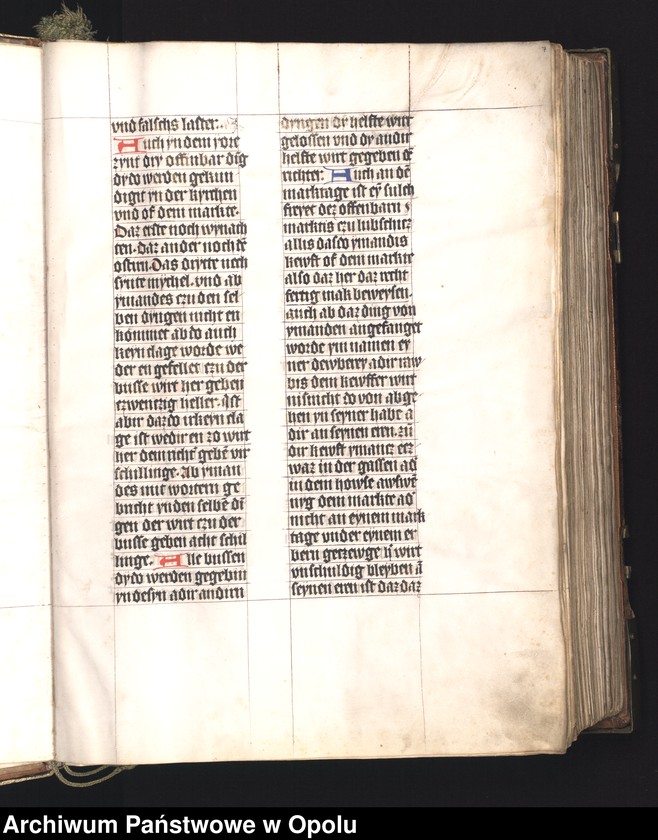 vnd falschs laster.
Auch yn dem vore
zynt dry offinbar dīg
dy do werden gekun
digit yn der kyrchen
vnd of dem markte.
Daz erste noch wynach
ten. daz ander noch dē
ostirn. Das drytte noch
synte mychel. vnd ab
ymandes czu den sel
ben dyngen nicht en
kommet ab do auch
keyn clage worde we
der en gefellet czu der
busse wirt her geben
czwenczig heller. Ist
abir daz do irkeyn cla
ge ist wedir en zo wirt
her dem richt' gebē vir
schillinge. Ab yman
des mit wortern ge
bricht yn den selbē dī
gen der wirt czu der
busse geben acht schil
linge. Alle bussen
dy do werden gegebin
yn desyn adir andirn
dyngen dy helfte wirt
gelossen vnd dy andir
helfte wirt gegeben dē
richter. Auch an dē
marktage ist eȳ sulch
freyet dez offenbarn
markris czu lubschicz
allis das do ymandis
kewft of dem markte
also daz her daz recht
fertig mak beweysen.
auch ab daz ding von
ymanden angefanget
worde ym namen ey
ner dewberey adir raw
bis dem kewffer wirt
nisnicht do von abge
hen yn seyner habe a
dir an seynen eren. zū
dir kewft ymant etz
waz in der gassen ad'
in dem howse awswē
nyg dem markte ad'
nicht an eynem mark
tage vnder eynem er
bern geczewge h' wirt
vnschuldig bleyben ā
seynen eren ist daz daz
Archiwum Państwowe w Opolu